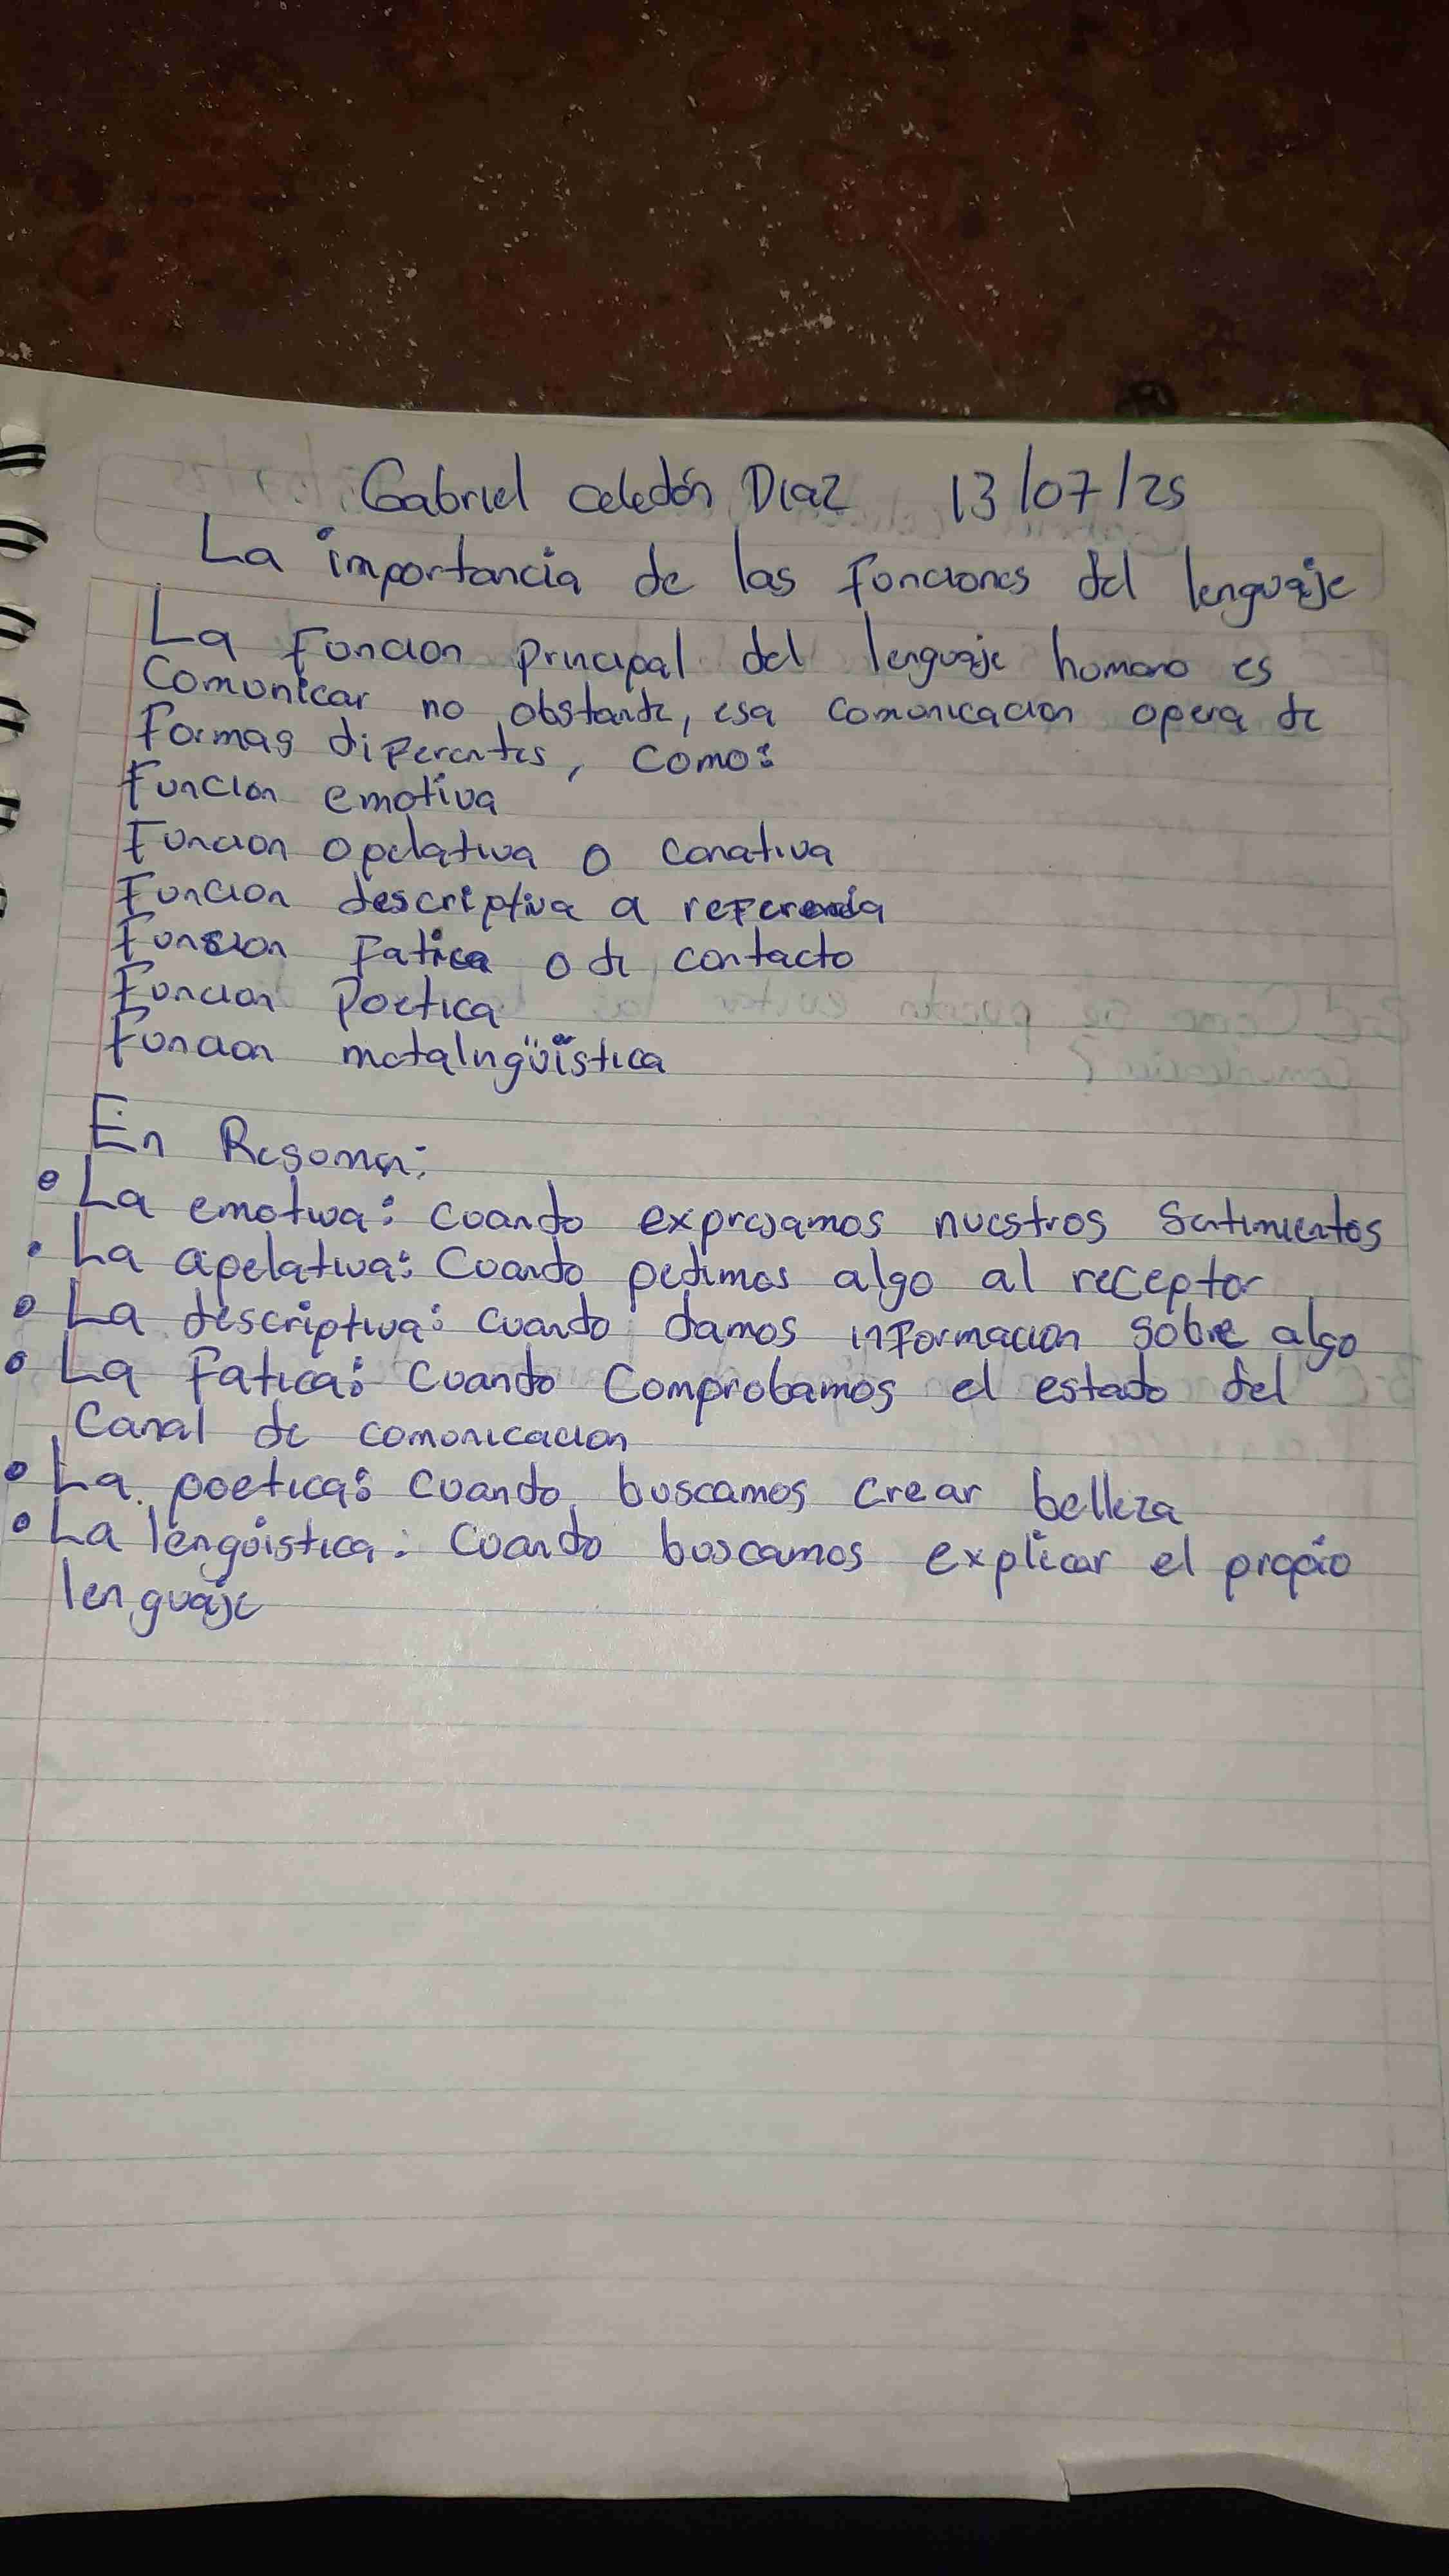 Gabriel Celedón Diaz 13/07/25
La importancia de las Funciones del lenguaje
La Funcion principal del lenguaje humano es
Comunicar no obstante, esa comunicacion opera de
Formas diferentes, como:
Funcion emotiva
Funcion opelativa o conativa
Funcion descriptiva a referencia
Funcion Fatica o de contacto
Funcion Poetica
Funcion metalngüística
En Resomen:
• La emotiva: cuando expresamos nuestros sentimientos
• La apelativa: Cuando pedimos algo al receptor
• La descriptiva: cuando damos informacion sobre algo
• La Fatica: Cuando Comprobamos el estado del
Canal de comunicacion
• La poetica: cuando buscamos crear belleza
• La lengüistica: Cuando buscamos explicar el propio
lenguaje